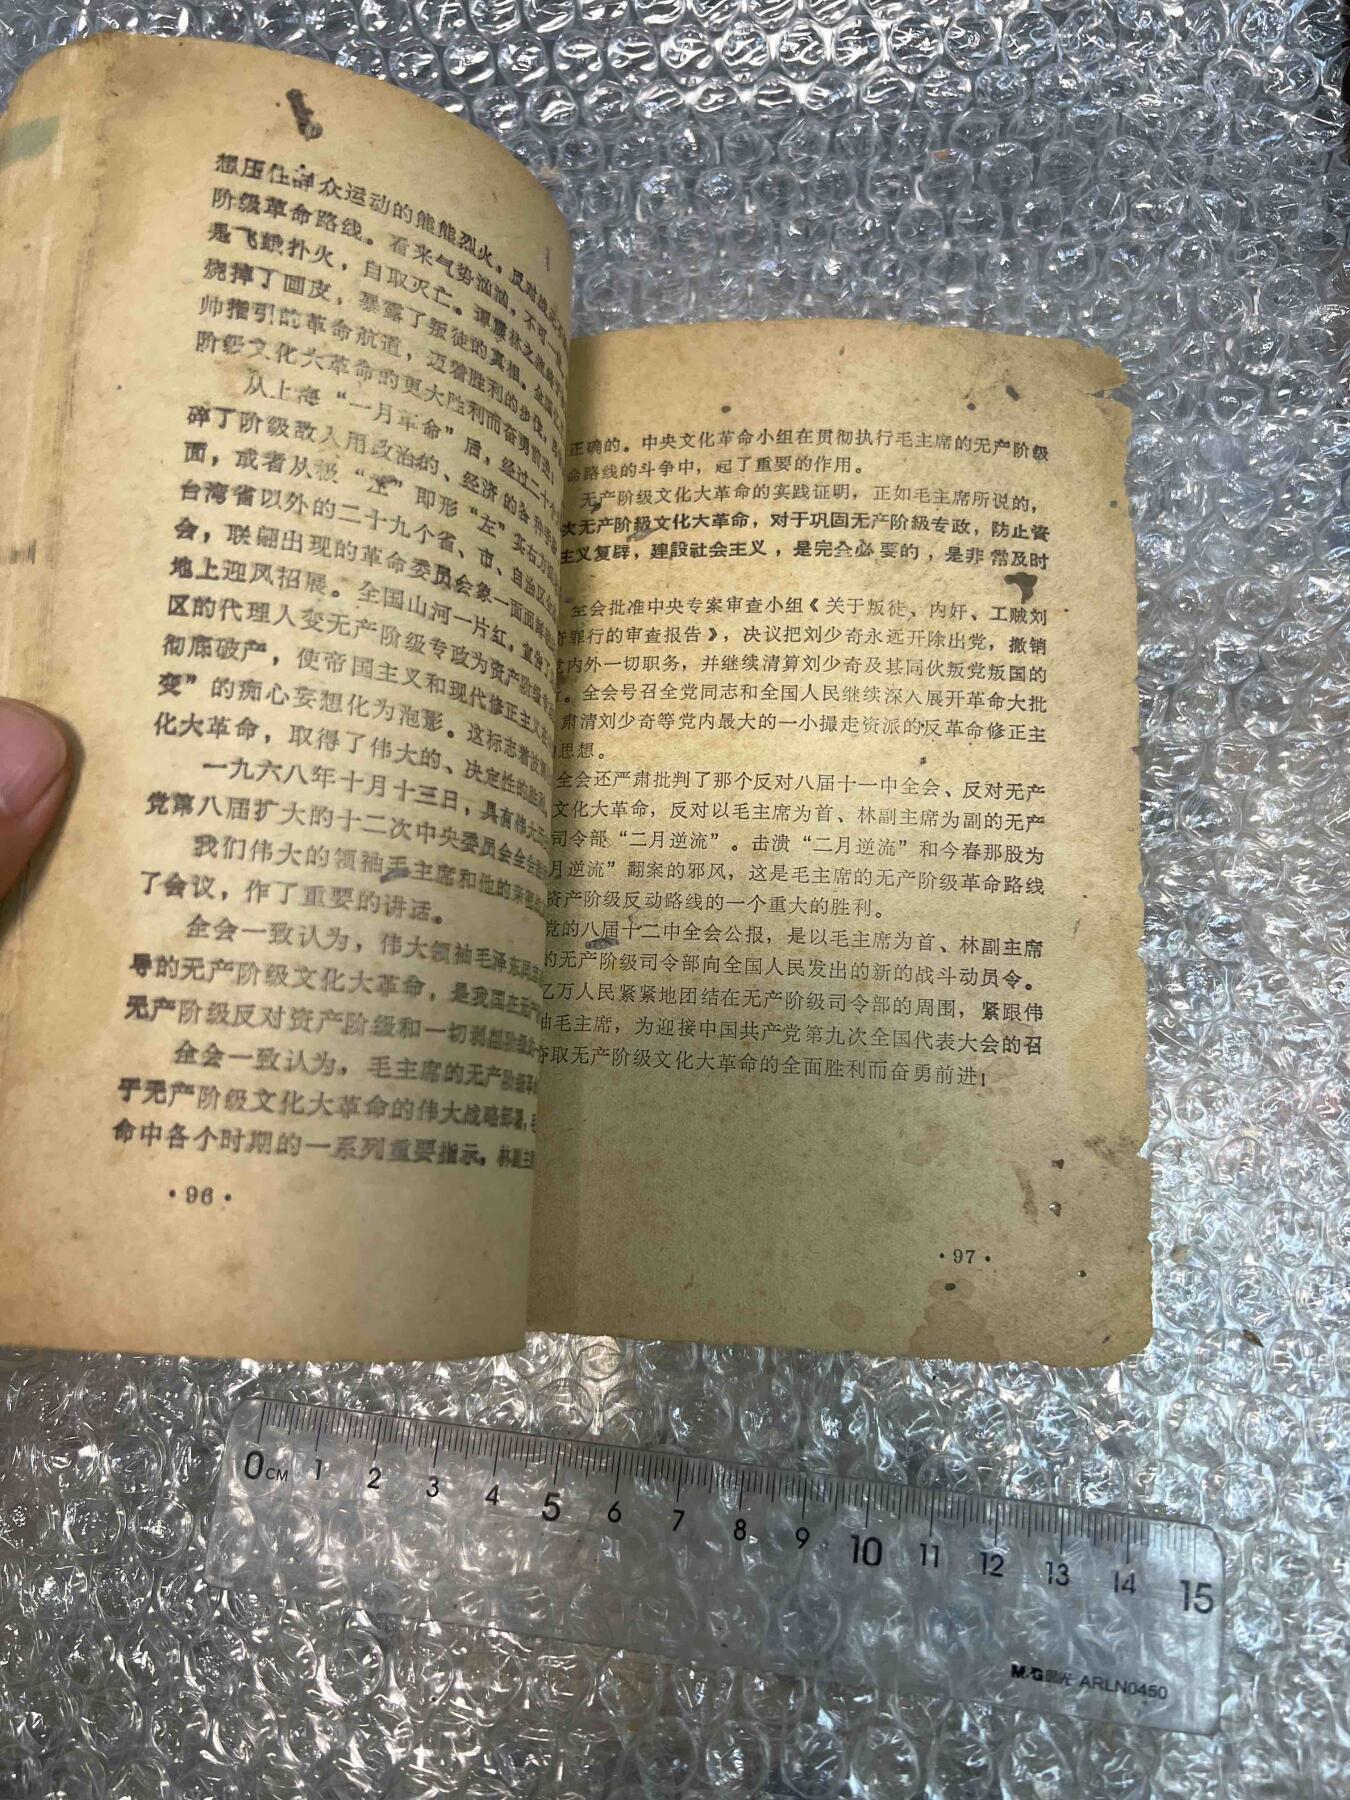 想压住群众运动的熊熊烈火，反对
阶级革命路线。看来气势汹汹，不可一
是飞蛾扑火，自取灭亡。谭震林之流
烧掉了画皮，暴露了叛徒的真相。全国
帅指引的革命航道，迈着胜利的步伐，
阶级文化大革命的更大胜利而奋勇前进！
从上海“一月革命”后，经过二十个
碎了阶级敌人用政治的、经济的各种
面，或者从极“左”即形“左”实右方面
台湾省以外的二十九个省、市、自治区全
会，联翩出现的革命委员会象一面面
地上迎风招展。全国山河一片红，宣告了
区的代理人变无产阶级专政为资产阶级专
彻底破产，使帝国主义和现代修正主义
变”的痴心妄想化为泡影。这标志着
化大革命，取得了伟大的、决定性的胜利
一九六八年十月十三日，具有伟大
党第八届扩大的十二次中央委员会全会
我们伟大的领袖毛主席和他的亲密
了会议，作了重要的讲话。
全会一致认为，伟大领袖毛泽东同志
导的无产阶级文化大革命，是我国在无产
无产阶级反对资产阶级和一切剥削阶级
全会一致认为，毛主席的无产阶级革
于无产阶级文化大革命的伟大战略部署，
命中各个时期的一系列重要指示，林副主
·96·
正确的。中央文化革命小组在贯彻执行毛主席的无产阶级
命路线的斗争中，起了重要的作用。
无产阶级文化大革命的实践证明，正如毛主席所说的，
次无产阶級文化大革命，对于巩固无产阶級专政，防止资
主义复辟，建設社会主义，是完全必要的，是非常及时
全会批准中央专案审查小组《关于叛徒、内奸、工贼刘
罪行的审查报告》，决议把刘少奇永远开除出党，撤销
党内外一切职务，并继续清算刘少奇及其同伙叛党叛国的
。全会号召全党同志和全国人民继续深入展开革命大批
肃清刘少奇等党内最大的一小撮走资派的反革命修正主
思想。
全会还严肃批判了那个反对八届十一中全会、反对无产
文化大革命，反对以毛主席为首、林副主席为副的无产
司令部“二月逆流”。击溃“二月逆流”和今春那股为
月逆流”翻案的邪风，这是毛主席的无产阶级革命路线
资产阶级反动路线的一个重大的胜利。
党的八届十二中全会公报，是以毛主席为首、林副主席
的无产阶级司令部向全国人民发出的新的战斗动员令。
亿万人民紧紧地团结在无产阶级司令部的周围，紧跟伟
袖毛主席，为迎接中国共产党第九次全国代表大会的召
夺取无产阶级文化大革命的全面胜利而奋勇前进！
·97·
0CM 1 2 3 4 5 6 7 8 9 10 11 12 13 14 15
M&G晨光 ARLN0450